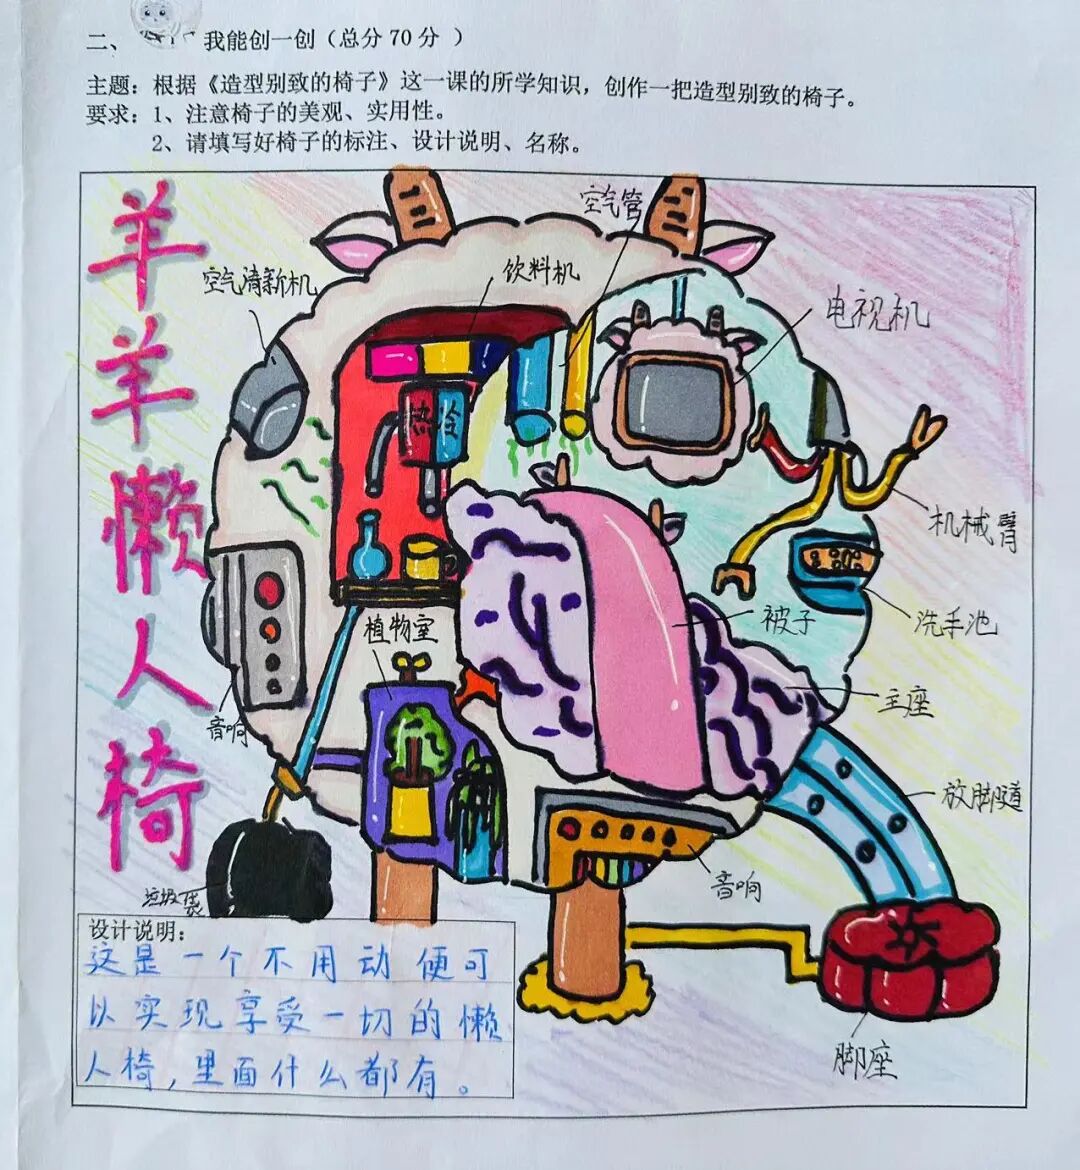 二、
我能创一创（总分70分 ）
主题：根据《造型别致的椅子》这一课的所学知识，创作一把造型别致的椅子。
要求：1、注意椅子的美观、实用性。
2、请填写好椅子的标注、设计说明、名称。
羊羊懒人椅
空气管
空气清新机
饮料机
电视机
热冷
机械臂
洗手池
被子
植物室
主座
音响
放脚道
音响
垃圾袋
脚座
设计说明：
这是一个不用动便可
以实现享受一切的懒
人椅，里面什么都有。